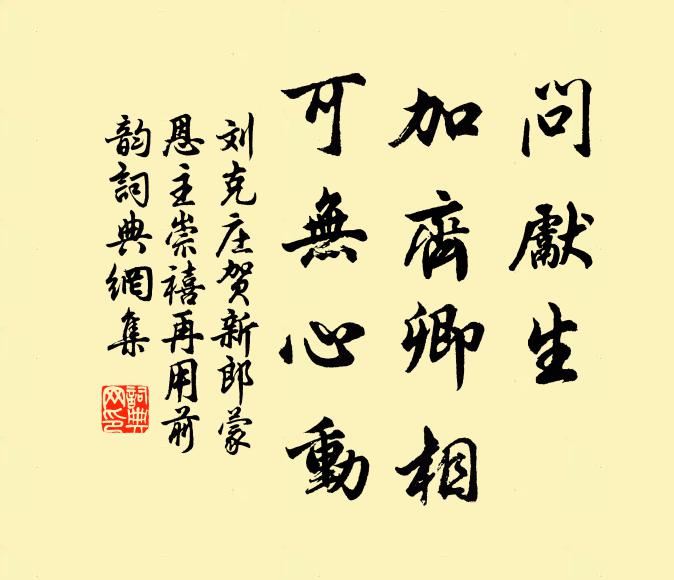 問獻生
加齊卿相
可無心動
刘克庄贺新郎蒙
恩主崇禧再用前
韵詞典網集
詞典
网印